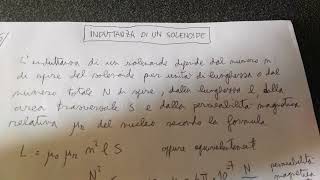 INDUTTANZA DI UN SOLENOIDE
L'induttanza di un solenoide dipende dal numero n
di spire del solenoide per unità di lunghezza o dal
numero totale N di spire, dalla lunghezza l dalla
area trasversale S e dalla permeabilità magnetica
relativa μr del nucleo secondo la formula
L = μ0 μr n² l S oppure equivalentemente
N² 10⁻⁷ N permeabilità
magnetica